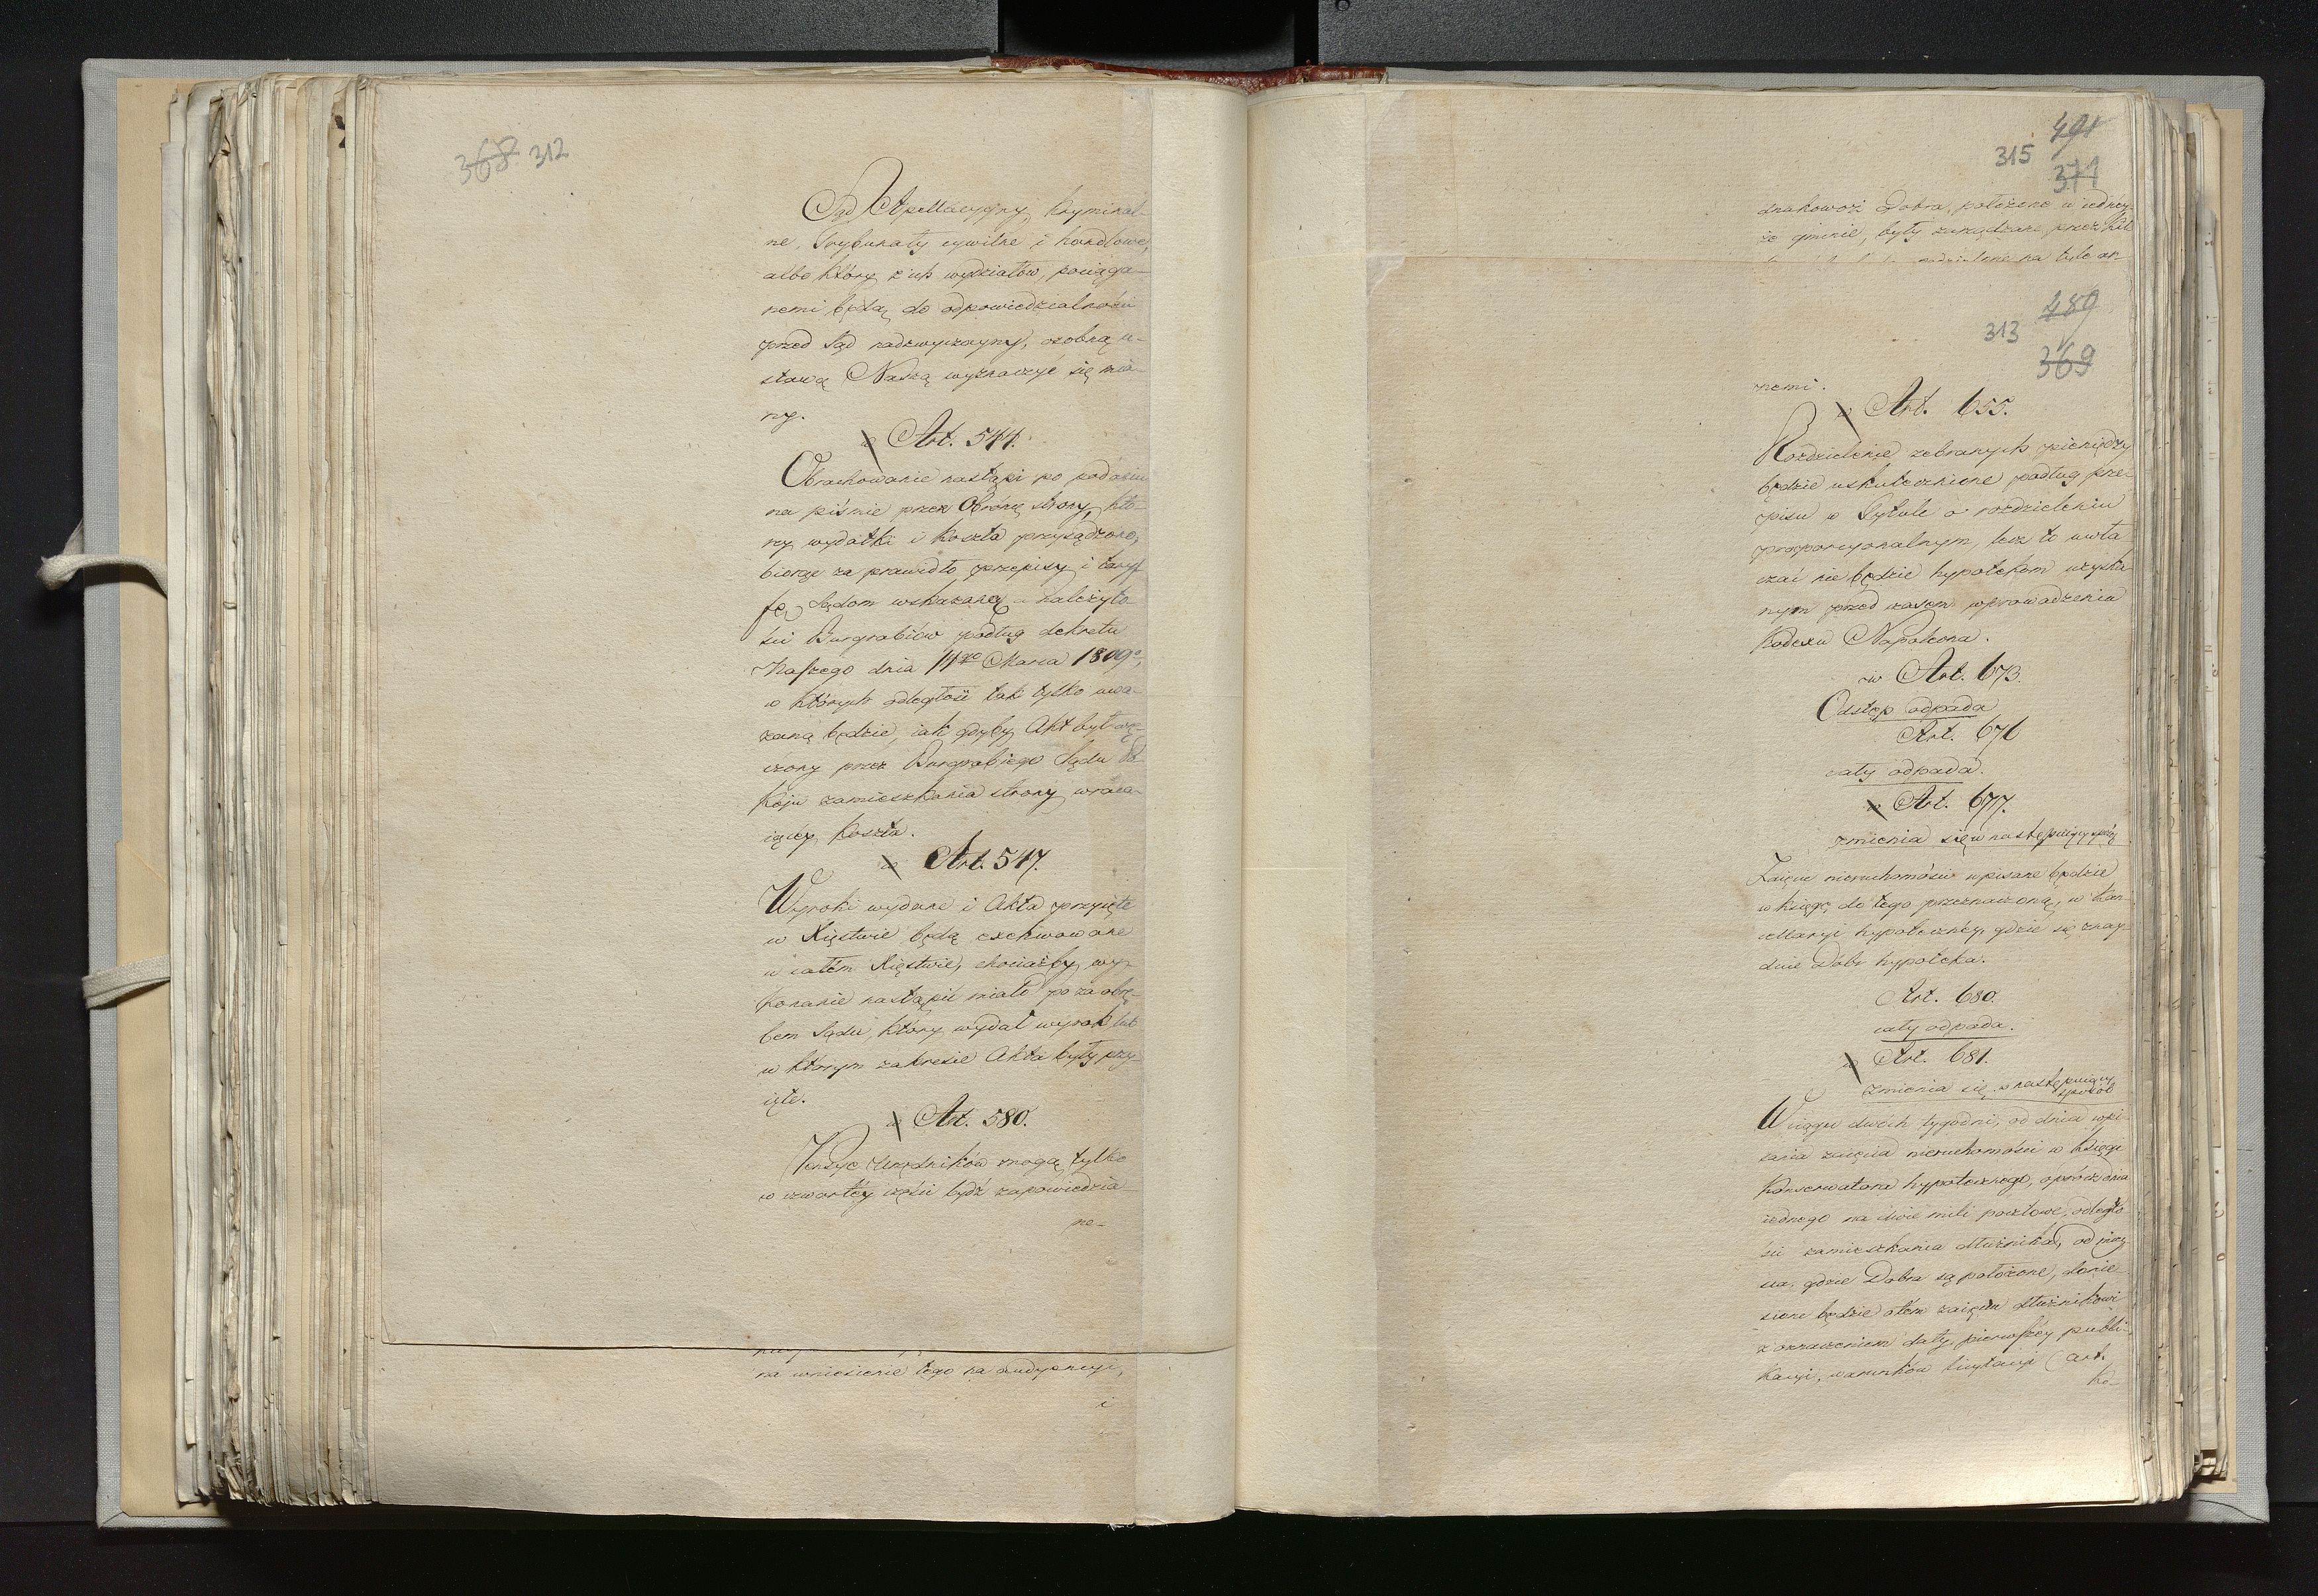 368 312
Sąd Apellacyyny, Kryminal-
ne, Trybunały cywilne i handlowe,
albo który z ich wydziałów, pociąga-
nemi będą do odpowiedzialności
przed Sąd nadzwyczayny, osobną u-
stawą Naszą wyznaczyć się ma-
ny.
w Art. 544.
Obrachowanie nastąpi po podaniu
na piśmie przez Obrońcę strony, któ-
ry wydatki i koszta przysądzono,
biorąc za prawidło przepisy i taryf-
fę Sądom wskazaną a należyto-
ści Burgrabiów podług dekretu
Naszego dnia 11go Marca 1809o,
w których odległość tak tylko uwa-
żaną będzie, iak gdyby Akt był
czony przez Burgrabiego Sądu Po-
koju zamieszkania strony wraca-
iącéy koszta.
w Art. 547.
Wyroki wydane i Akta przyięte
w Xięstwie będą exekwowane
w całém Xięstwie, chociażby wy-
konanie nastąpić miało poza obrę-
bem Sądu, który wydał wyrok lub
w którym zakresie Akta były przy-
ięte.
w Art. 580.
Pensye Urzędników mogą tylko
w czwartéy części bydź zapowiedzia-
ne-
na wniesienie tego na audyencyi,
i
491
315
371
dnakowoż Dobra, położone w iedney-
że gminie, były zarządzane przez kil
podzielone na tyle an-
489
313
369
nemi.
w Art. 655.
Rozdzielenie zebranych pieniędzy
będzie uskutecznione podług prze-
pisu w Tytule o rozdzieleniu
proporcyonalnym, lecz to uwła-
czać nie będzie hypotekom uzyska-
nym przed czasem wprowadzenia
Kodexu Napoleona.
w Art. 673.
Odstęp odpada
Art. 676
cały odpada.
w Art. 677.
zmienia się w następuiący spósób
Zaięcie nieruchomości wpisane będzie
w księgę do tego przeznaczoną, w Kan-
cellaryi hypoteczney, gdzie się znay-
duie Dóbr hypoteka.
Art. 680.
cały odpada.
w Art. 681.
zmienia się w następuiący
sposób
W ciągu dwóch tygodni, od dnia wpi-
sania zaięcia nieruchomości w księgi
Konserwatora hypotecznego, oprócz dnia
iednego na dwie mili pocztowe, odległo-
ści zamieszkania dłużnika, od miey-
sca, gdzie Dobra są położone, donie-
sione będzie o tém zaięciu dłużnikowi
z oznaczeniem daty, pierwszéy publi-
kacyi, warunków licytacyi (art.
ko-